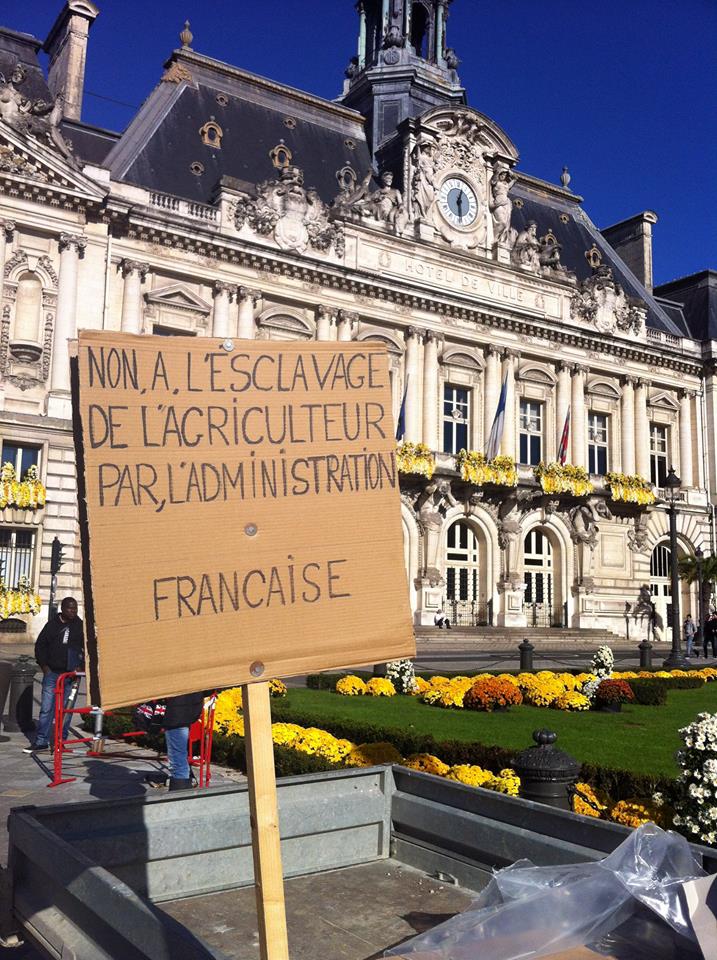 HOTEL DE VILLE
NON, A, L'ESCLAVAGE
DE L'AGRICULTEUR
PAR, L'ADMINISTRATION
FRANCAISE